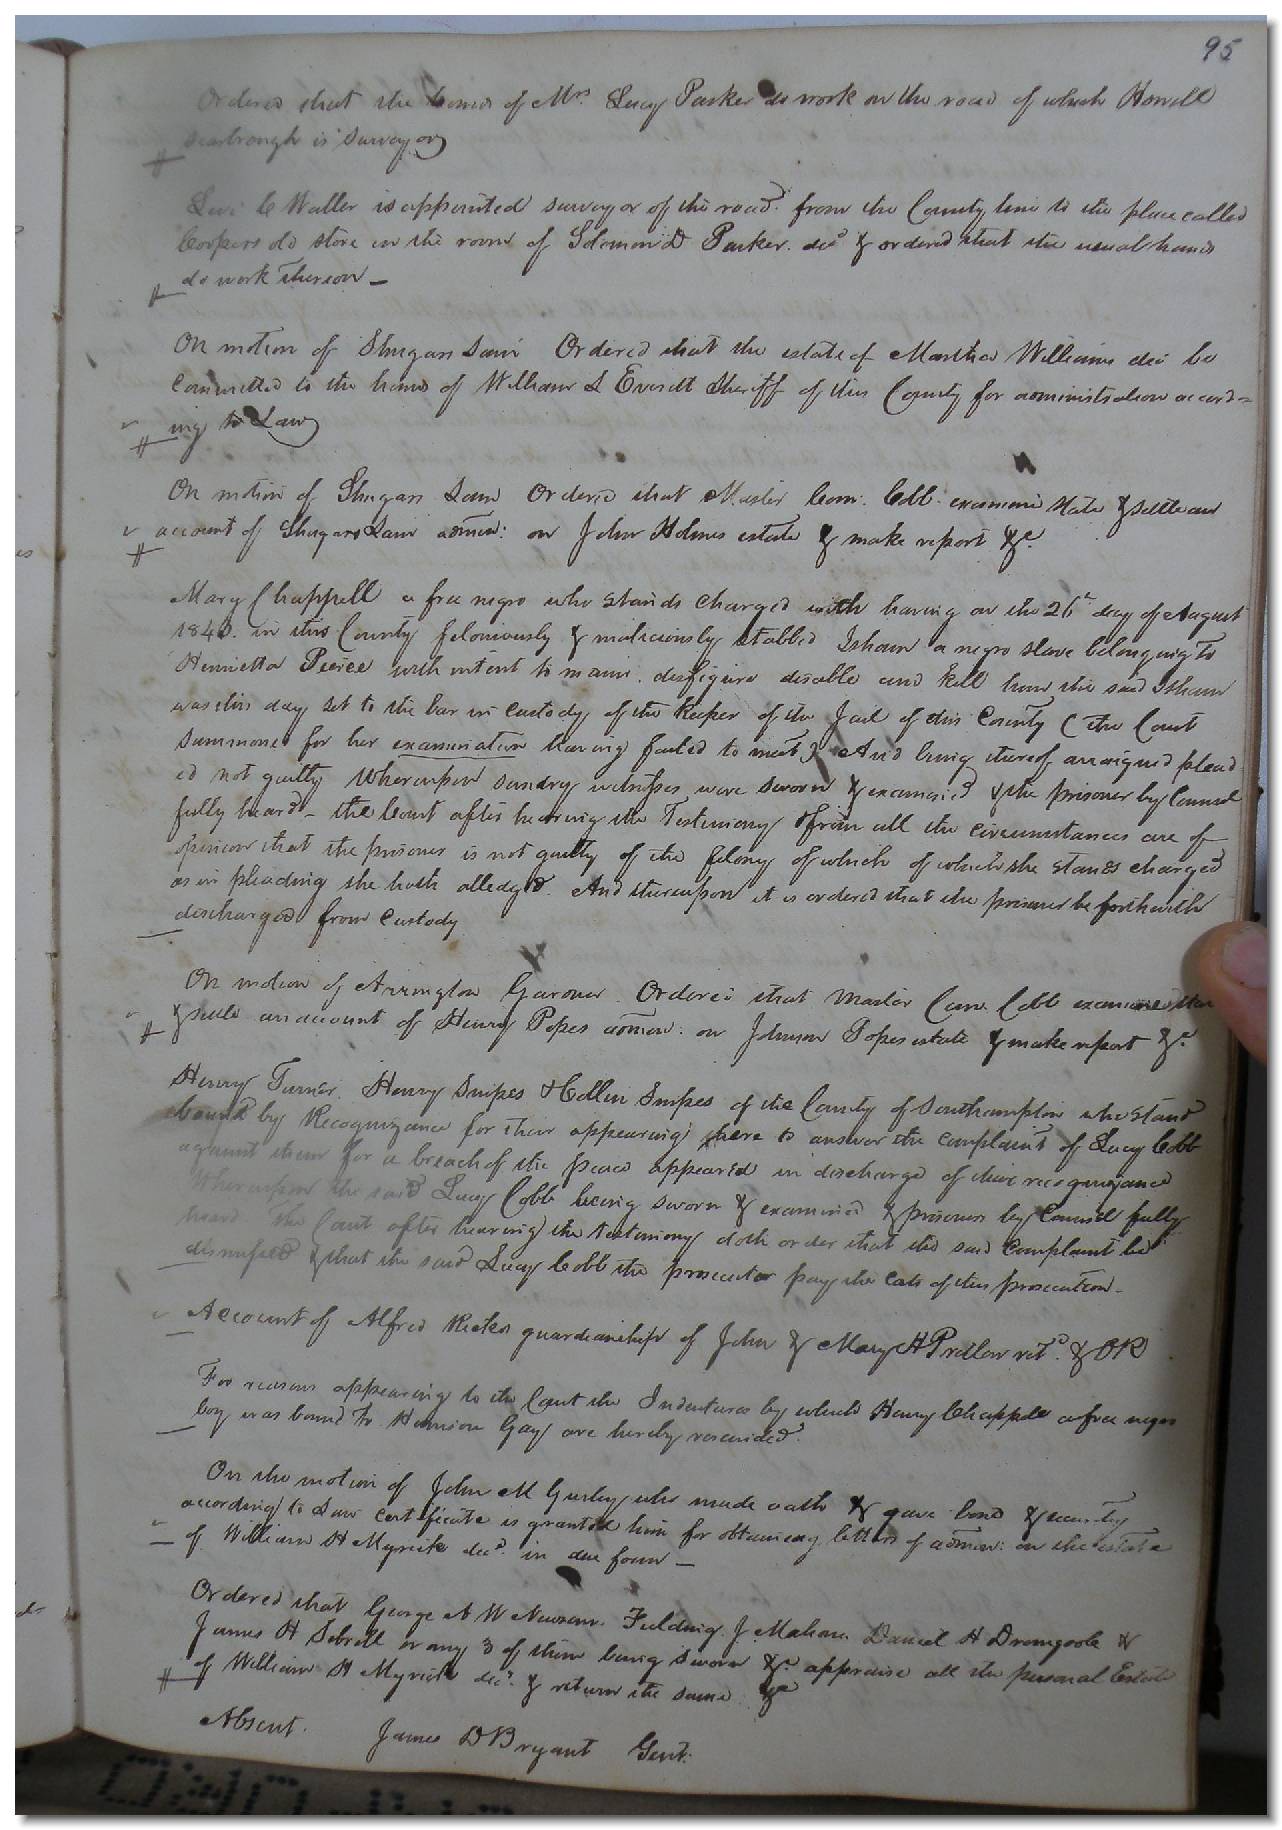 95
Ordered that the hands of Mrs Lucy Parker do work on the road of which Howell
Scarbrough is Surveyor
Levi C Waller is appointed surveyor of the road from the County line to the place called
old store in the room of Solomon D Parker decd & ordered that the usual hands
do work thereon –
On motion of Shugars Lain Ordered that the estate of Martha Williams dec be
committed to the hands of William S Everett Sheriff of this County for administration accord=
ing to Law
On motion of Shugars Lain Ordered that Master Com: Cobb examine state & settle an
account of Shugars Lain admor: on John Holmes estate & make report &c.
Mary Chappell a free negro who stands charged with having on the 26th day of August
in this County feloniously & maliciously stabbed Isham a negro slave belonging to
Henrietta Peirce with intent to maim, disfigure disable and kill him the said Isham
was this day set to the bar in custody of the Keeper of the Jail of this County (the Court
Summoned for her examination having failed to meet) And being thereof arraigned plead
ed not guilty Whereupon sundry witnesses were sworn & examined & the prisoner by Counsel
fully heard – the Court after hearing the Testimony & from all the circumstances are of
opinion that the prisoner is not guilty of the felony of which of which she stands charged
as in pleading she hath alledged. And thereupon it is ordered that the prisoner be forthwith
discharged from custody
On motion of Arrington Gardner Ordered that Master Com. Cobb examine state
& settle an account of Henry Popes admor: on Johnson Popes estate & make report &c.
Henry Turner, Henry Snipes & Snipes of the County of Southampton who stand
bound by Recognizance for their appearing here to answer the complaint of Lucy Cobb
against them for a breach of the peace appeared in discharge of their recognizance
Whereupon the said Lucy Cobb being sworn & examined & prisoners by Counsel fully
heard The Court after hearing the testimony doth order that the said complaint be
dismissed & that the said Lucy Cobb the prosecutor pay the costs of this prosecution.
Account of Alfred Ricks guardianship of John & Mary H Pretlow retd. & OR
For reasons appearing to the Court the Indentures by which Henry Chappell a free negro
boy was bound to Harrison Gay are hereby rescinded.
On the motion of John M Gurley who made oath & gave bond & security
according to Law certificate is granted him for obtaining letters of admon: on the estate
of William H Myrick decd. in due form –
Ordered that George A W Newsom, Fielding J Mahone, Daniel H Dromgoole &
James H Sebrell or any 3 of them being sworn &c appraise all the personal Estate
of William H Myrick decd. & return the same &c
Absent. James D Bryant Gent: